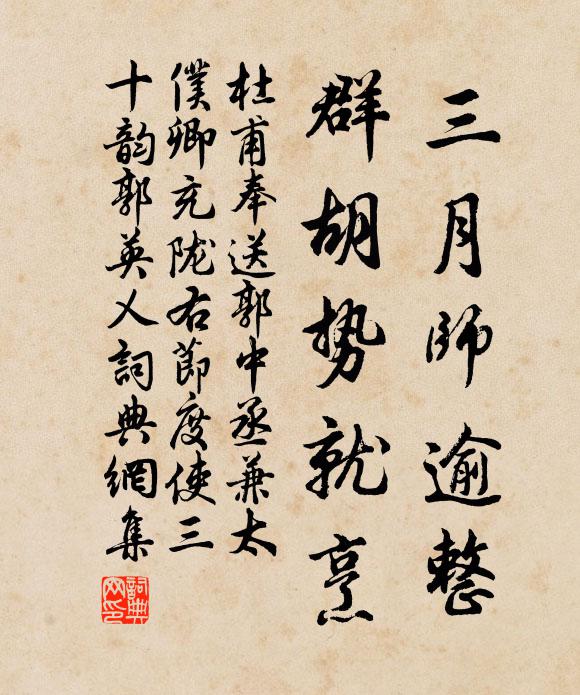 三月師逾整
群胡势就烹
杜甫奉送郭中丞兼太
僕卿充陇右節度使三
十韵郭英乂詞典網集
詞典网印